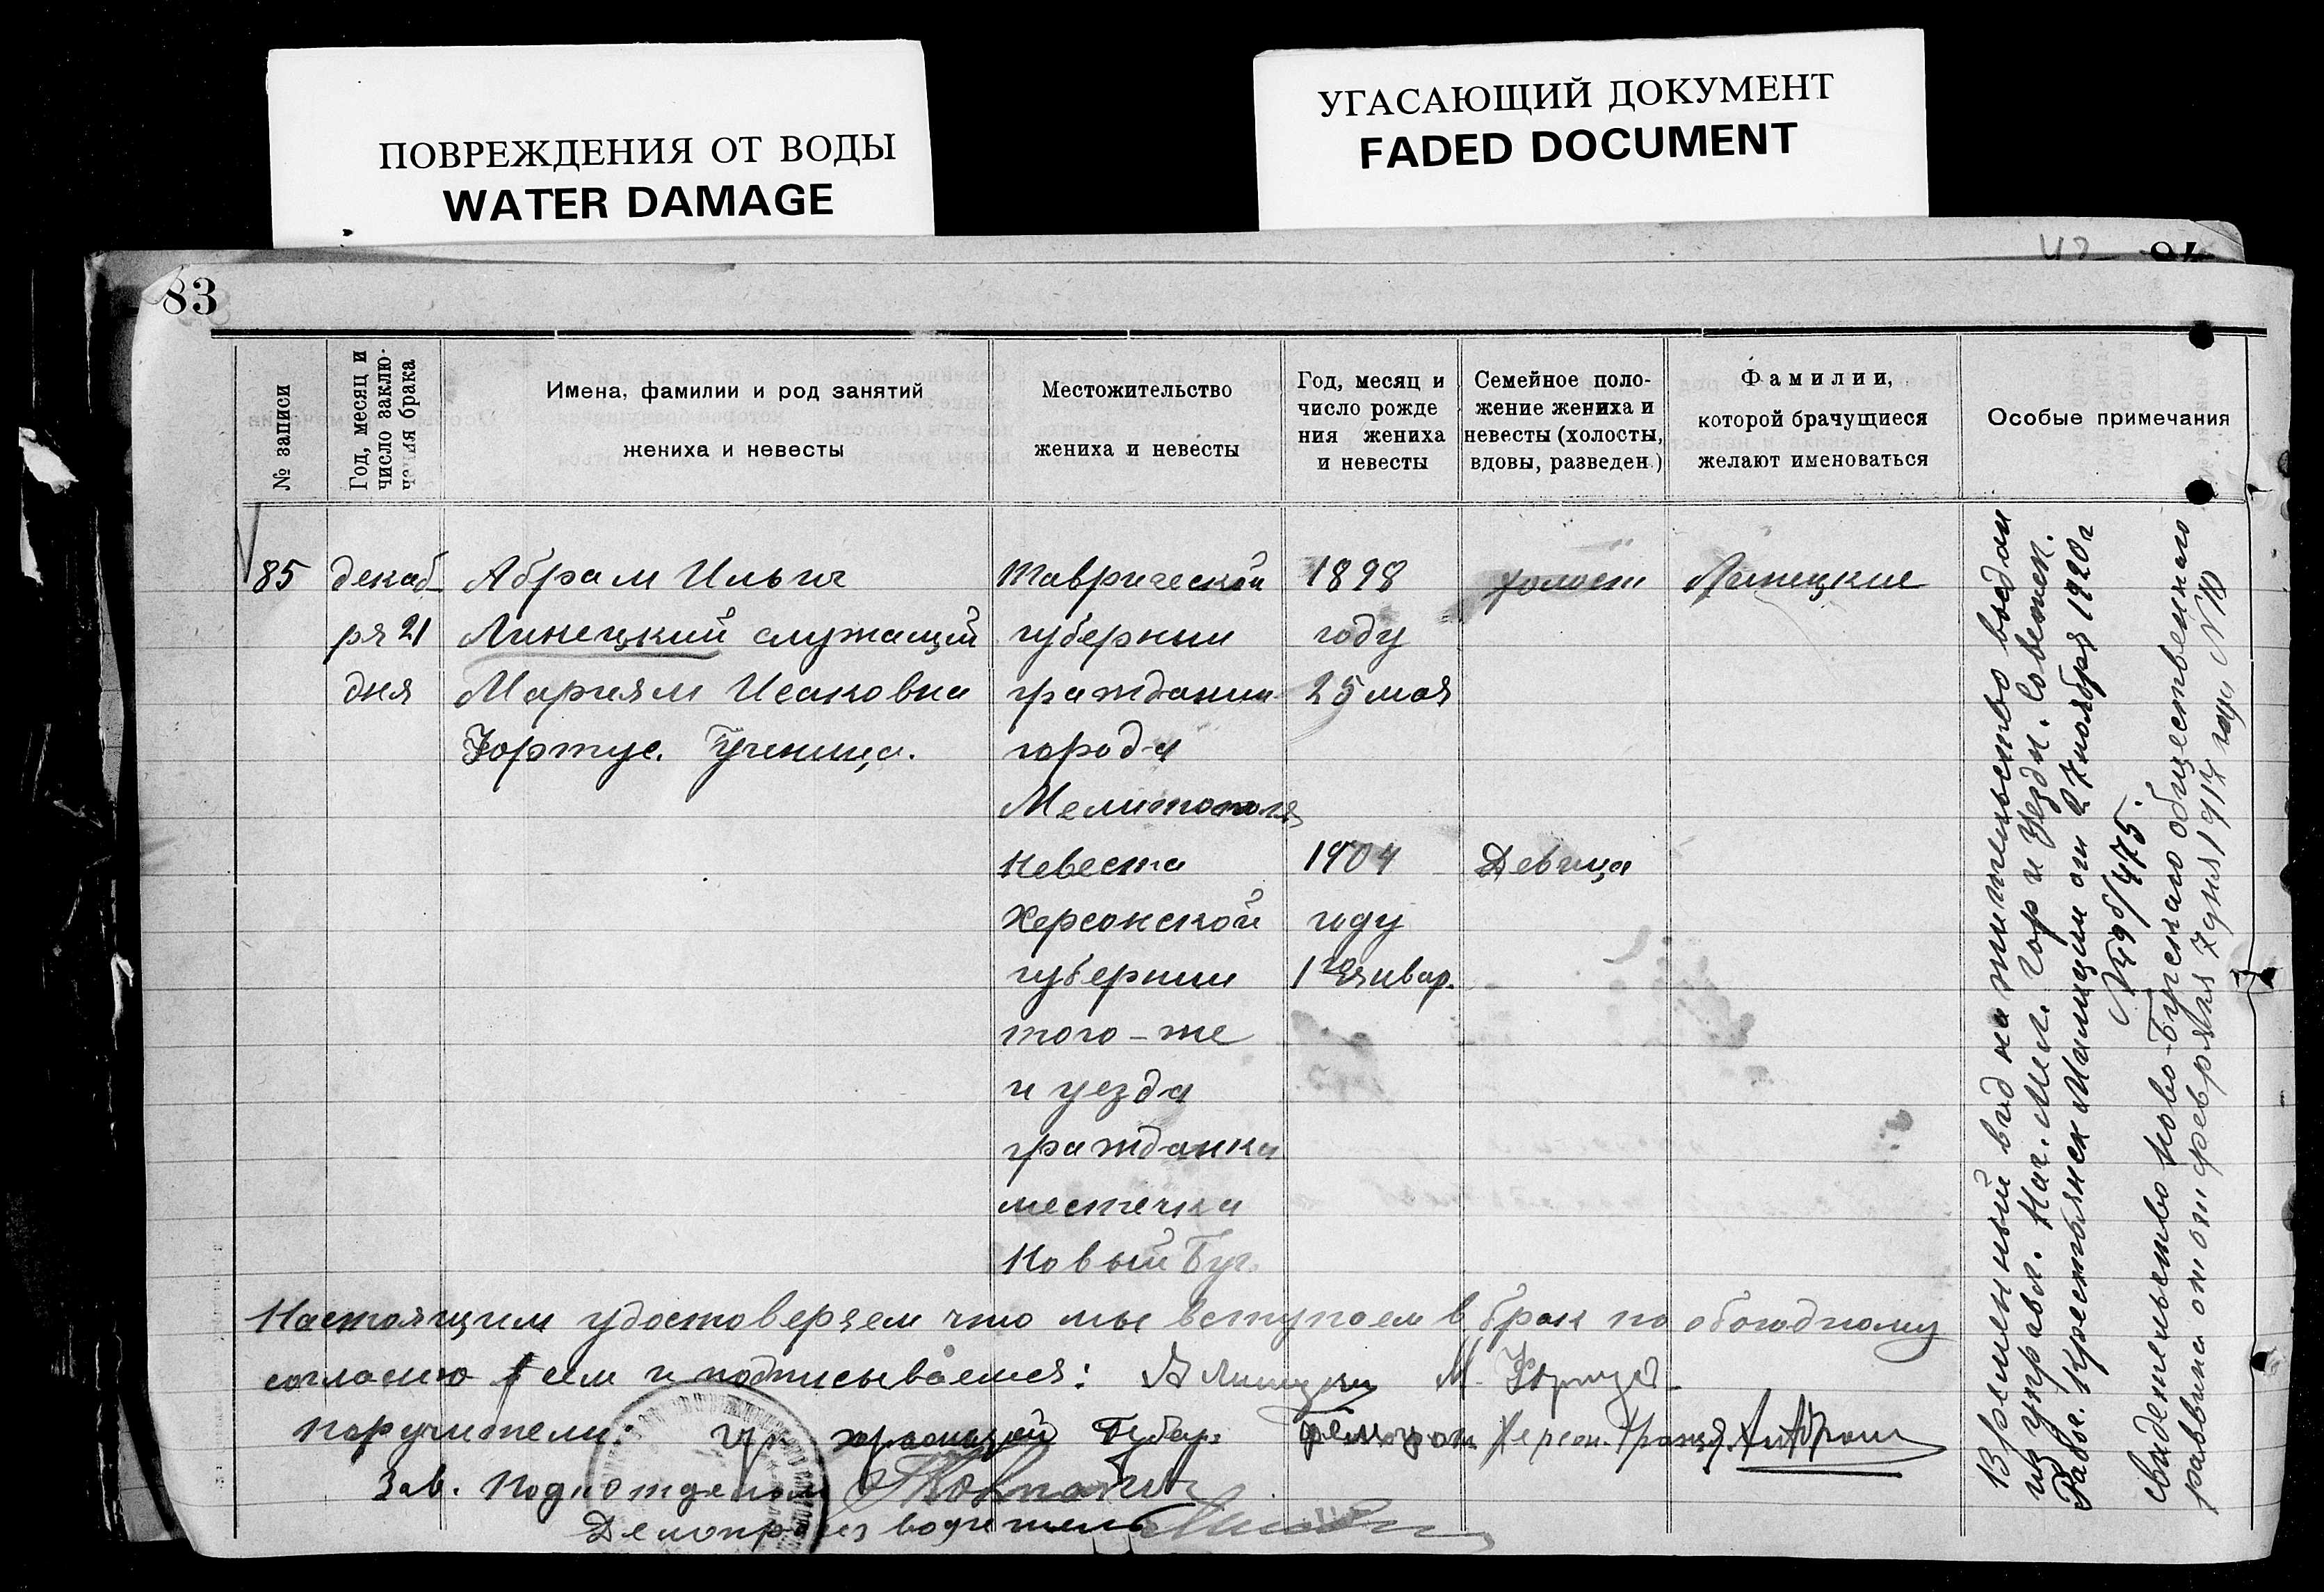 ПОВРЕЖДЕНИЯ ОТ ВОДЫ
WATER DAMAGE
УГАСАЮЩИЙ ДОКУМЕНТ
FADED DOCUMENT
83
№ записи
Год, месяц и
число заклю-
чения брака
Имена, фамилии и род занятий
жениха и невесты
Местожительство
жениха и невесты
Год, месяц и
число рожде
ния жениха
и невесты
Семейное поло-
жение жениха и
невесты (холосты,
вдовы, разведен.)
Фамилии,
которой брачущиеся
желают именоваться
Особые примечания
85
декаб-
ря 21
дня
Абрам Ильич
Линецкий служащий
Мариям Исаковна
ученица.
Таврической
губернии
гражданин
города
Мелитополя
невеста
Херсонской
губернии
того-же
и уезда
гражданка
местечка
Новый Буг.
1898
году
25 мая
1904
году
1го январ.
холост
Девица
Линецкие
Временный вид на жительство выдан
из управл. Нач. Мил. Гор и Уездн. Советск.
Рабоч. Крестьянск Милиции от 27 ноября 1920 г
№
свидетельство Ново-Бугского общественного
раввина от февраля 7 дня 1917 года № 10
Настоящим удостоверяем что мы вступаем в брак по обоюдному
согласию чем и подписываемся: А Линецкий М.
Поручители:
Зав. Подотделом
Делопроизводитель